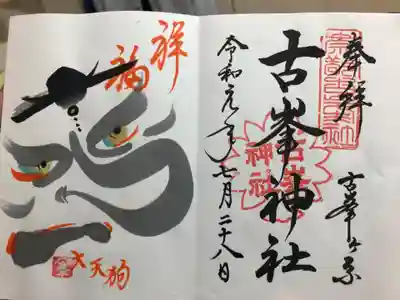 奉拝
古峯ヶ原
古峯神社
古峯神社
令和元年七月二十八日
祥福
大天狗